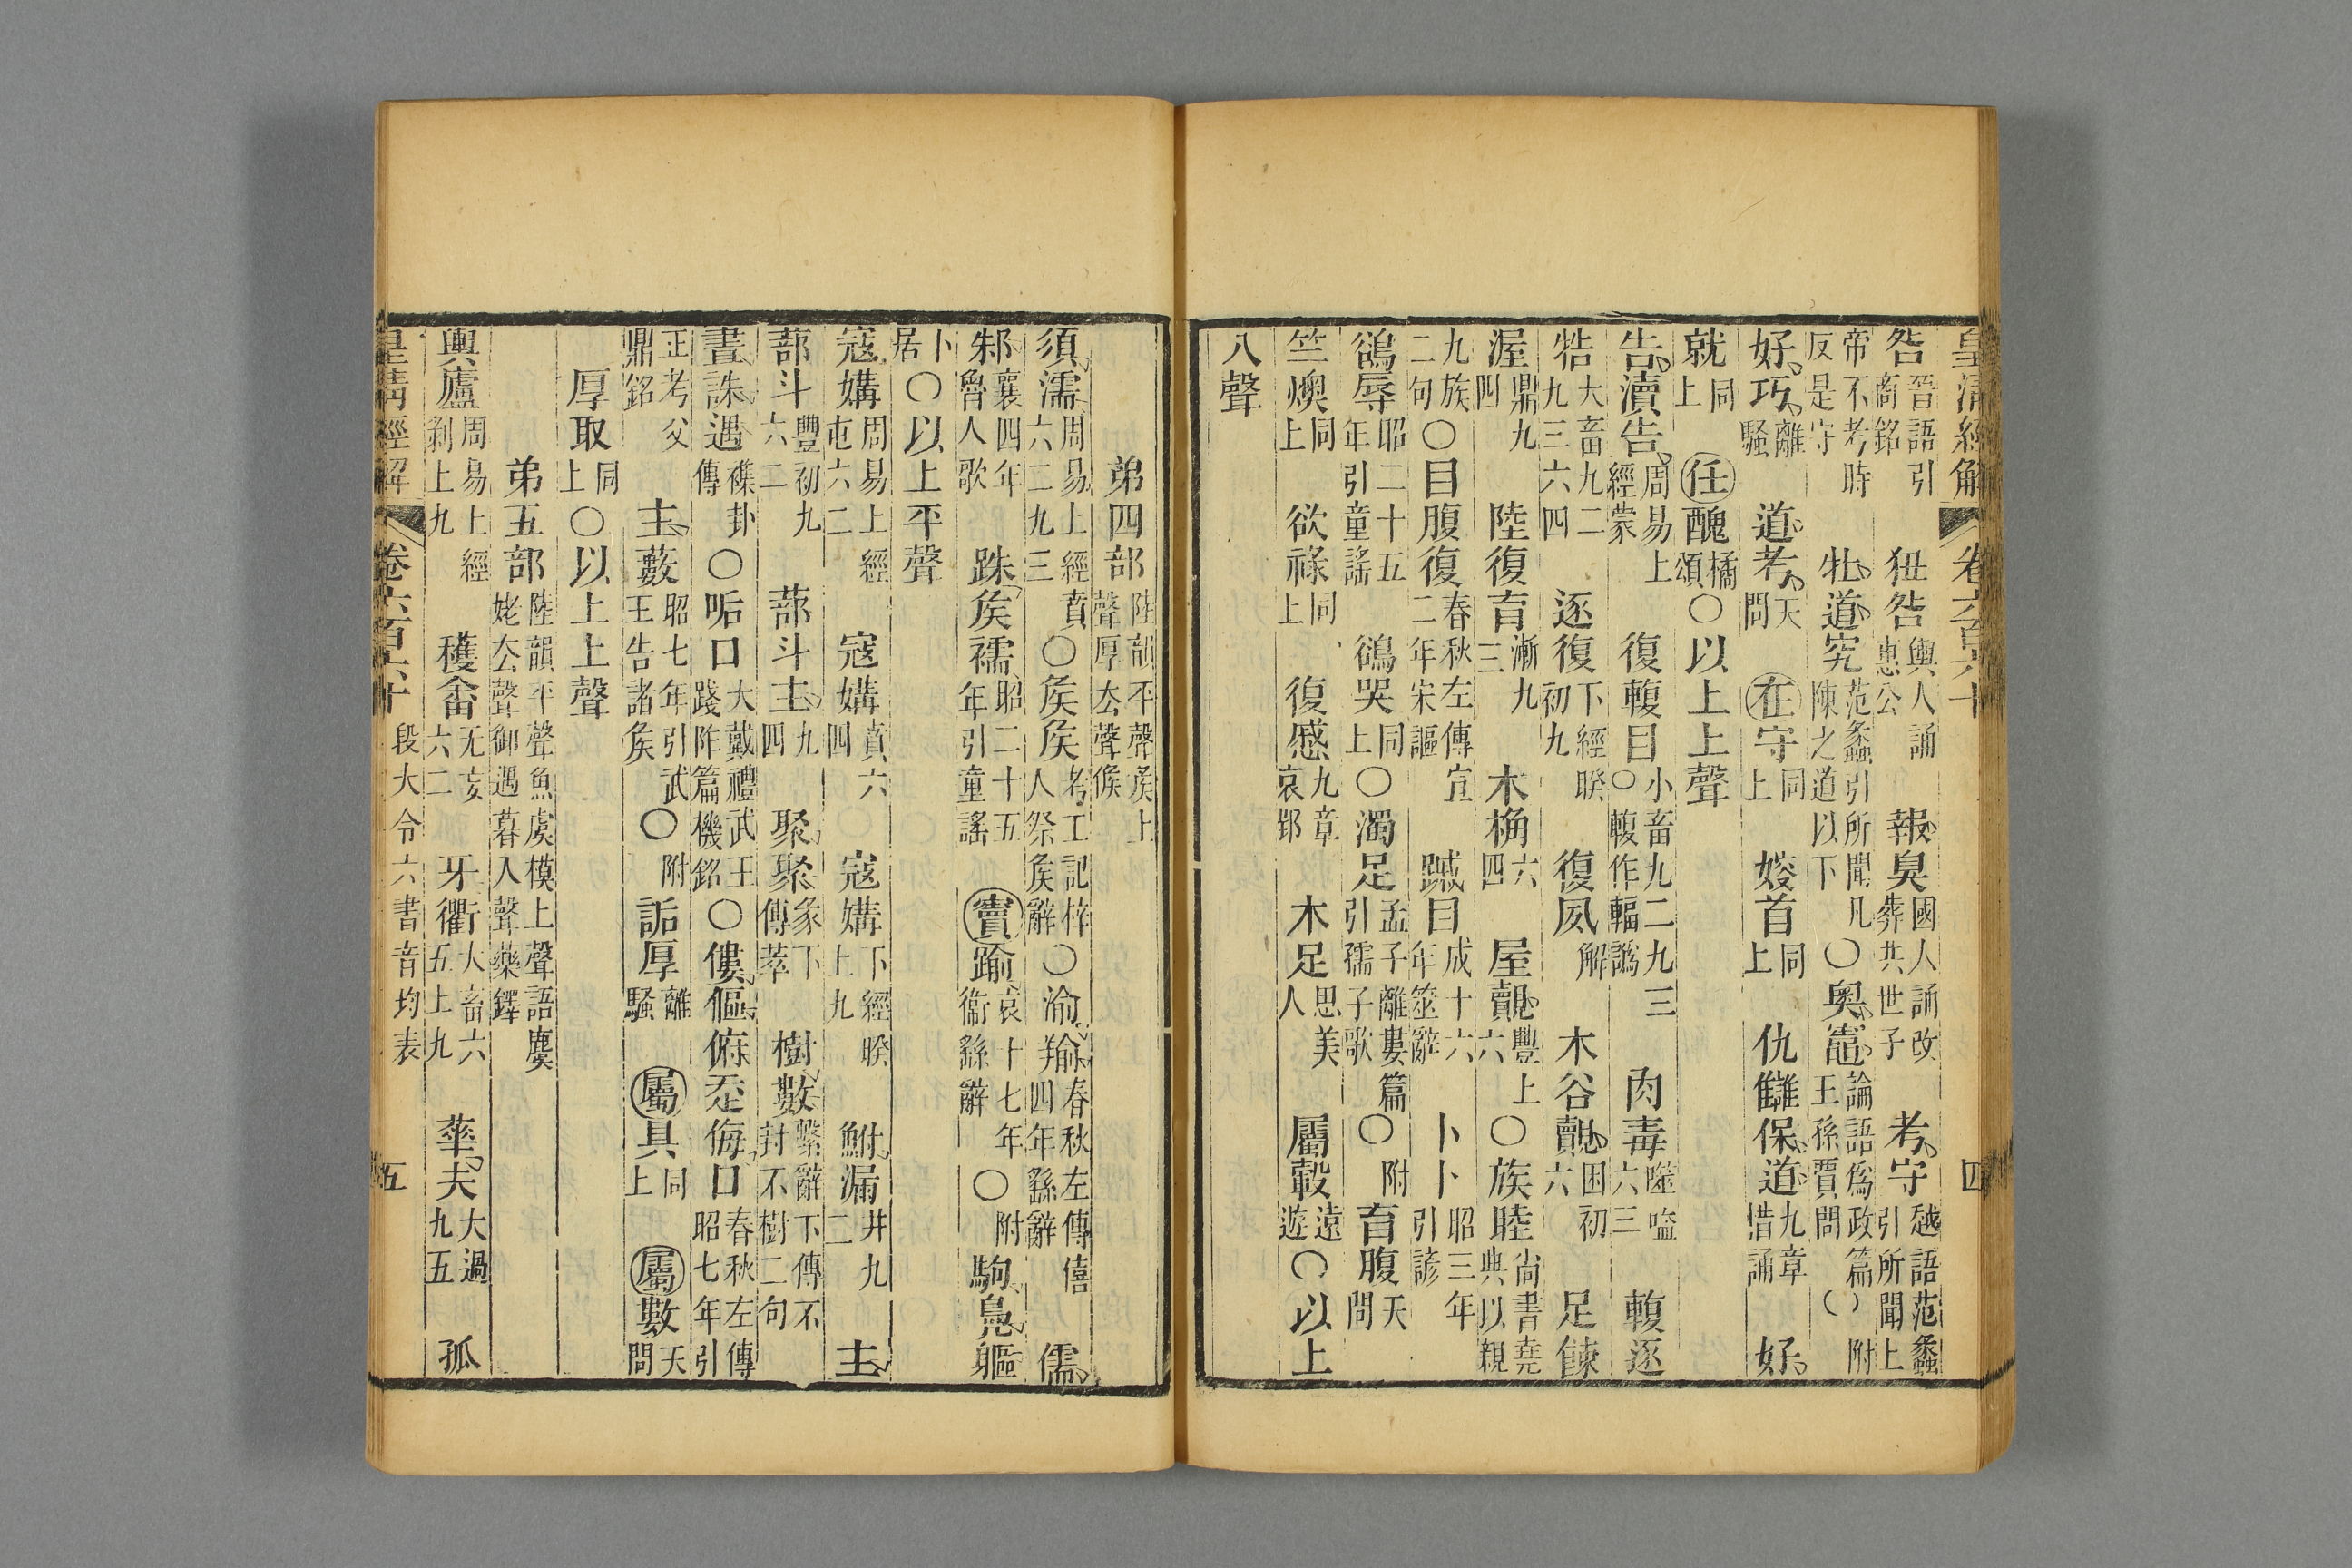 皇清經解 卷六百六十 四
咎晉語引商銘 狃咎輿人誦惠公 報臭國人誦改葬共世子 考守越語范蠡引所聞上
帝不考時反是守 牡道究范蠡引所聞凡陳之道以下〇奧竈論語爲政篇王孫賈問〇附
好巧離騷 道考天問 在守同上 㛮首同上 仇讎保道九章惜誦 好
就同上 任醜橘頌〇以上上聲
告瀆告周易上經蒙 復輹目小畜九二九三〇輹作輻譌 肉毒噬嗑六三 輹逐
牿大畜九二九三六四 逐復下經睽初九 復夙解 木谷覿困初六 足餗
渥鼎九四 陸復育漸九三 木桷六四 屋覿豐上六〇族睦尚書堯典以親
九族二句〇目腹復春秋左傳宣二年宋謳 䠞目成十六年筮辭 卜卜昭三年引諺
鵒辱昭二十五年引童謠 鵒哭同上〇濁足孟子離婁篇引孺子歌〇附 育腹天問
竺燠同上 欲祿同上 復慼九章哀郢 木足思美人 屬轂遠遊〇以上
入聲
弟四部陸韻平聲矦上聲厚厺聲候
須濡周易上經賁六二九三〇矦矦考工記梓人祭矦辭〇渝羭春秋左傳僖四年繇辭 儒
邾襄四年魯人歌 跦矦襦昭二十五年引童謠 竇踰哀十七年衞繇辭〇附 駒鳧軀
卜居〇以上平聲
寇媾周易上經屯六二 寇媾賁六四 寇媾下經睽上九 鮒漏井九二 主
蔀斗豐初九六二 蔀斗主九四 聚聚彖下傳萃 樹數繫辭下傳不封不樹二句
晝誅遇襍卦傳〇㖃口大戴禮武王踐阼篇機銘〇僂傴俯侮口春秋左傳昭七年引
正考父鼎銘 主藪昭七年引武王告諸矦〇附 詬厚離騷 屬具同上 屬數天問
厚取同上〇以上上聲
弟五部陸韻平聲魚虞模上聲語麌姥厺聲御遇暮入聲藥鐸
輿廬周易上經剝上九 穫畬无妄六二 牙衢大畜六五上九 華夫大過九五 孤
皇清經解 卷六百六十 段大令六書音均表 五